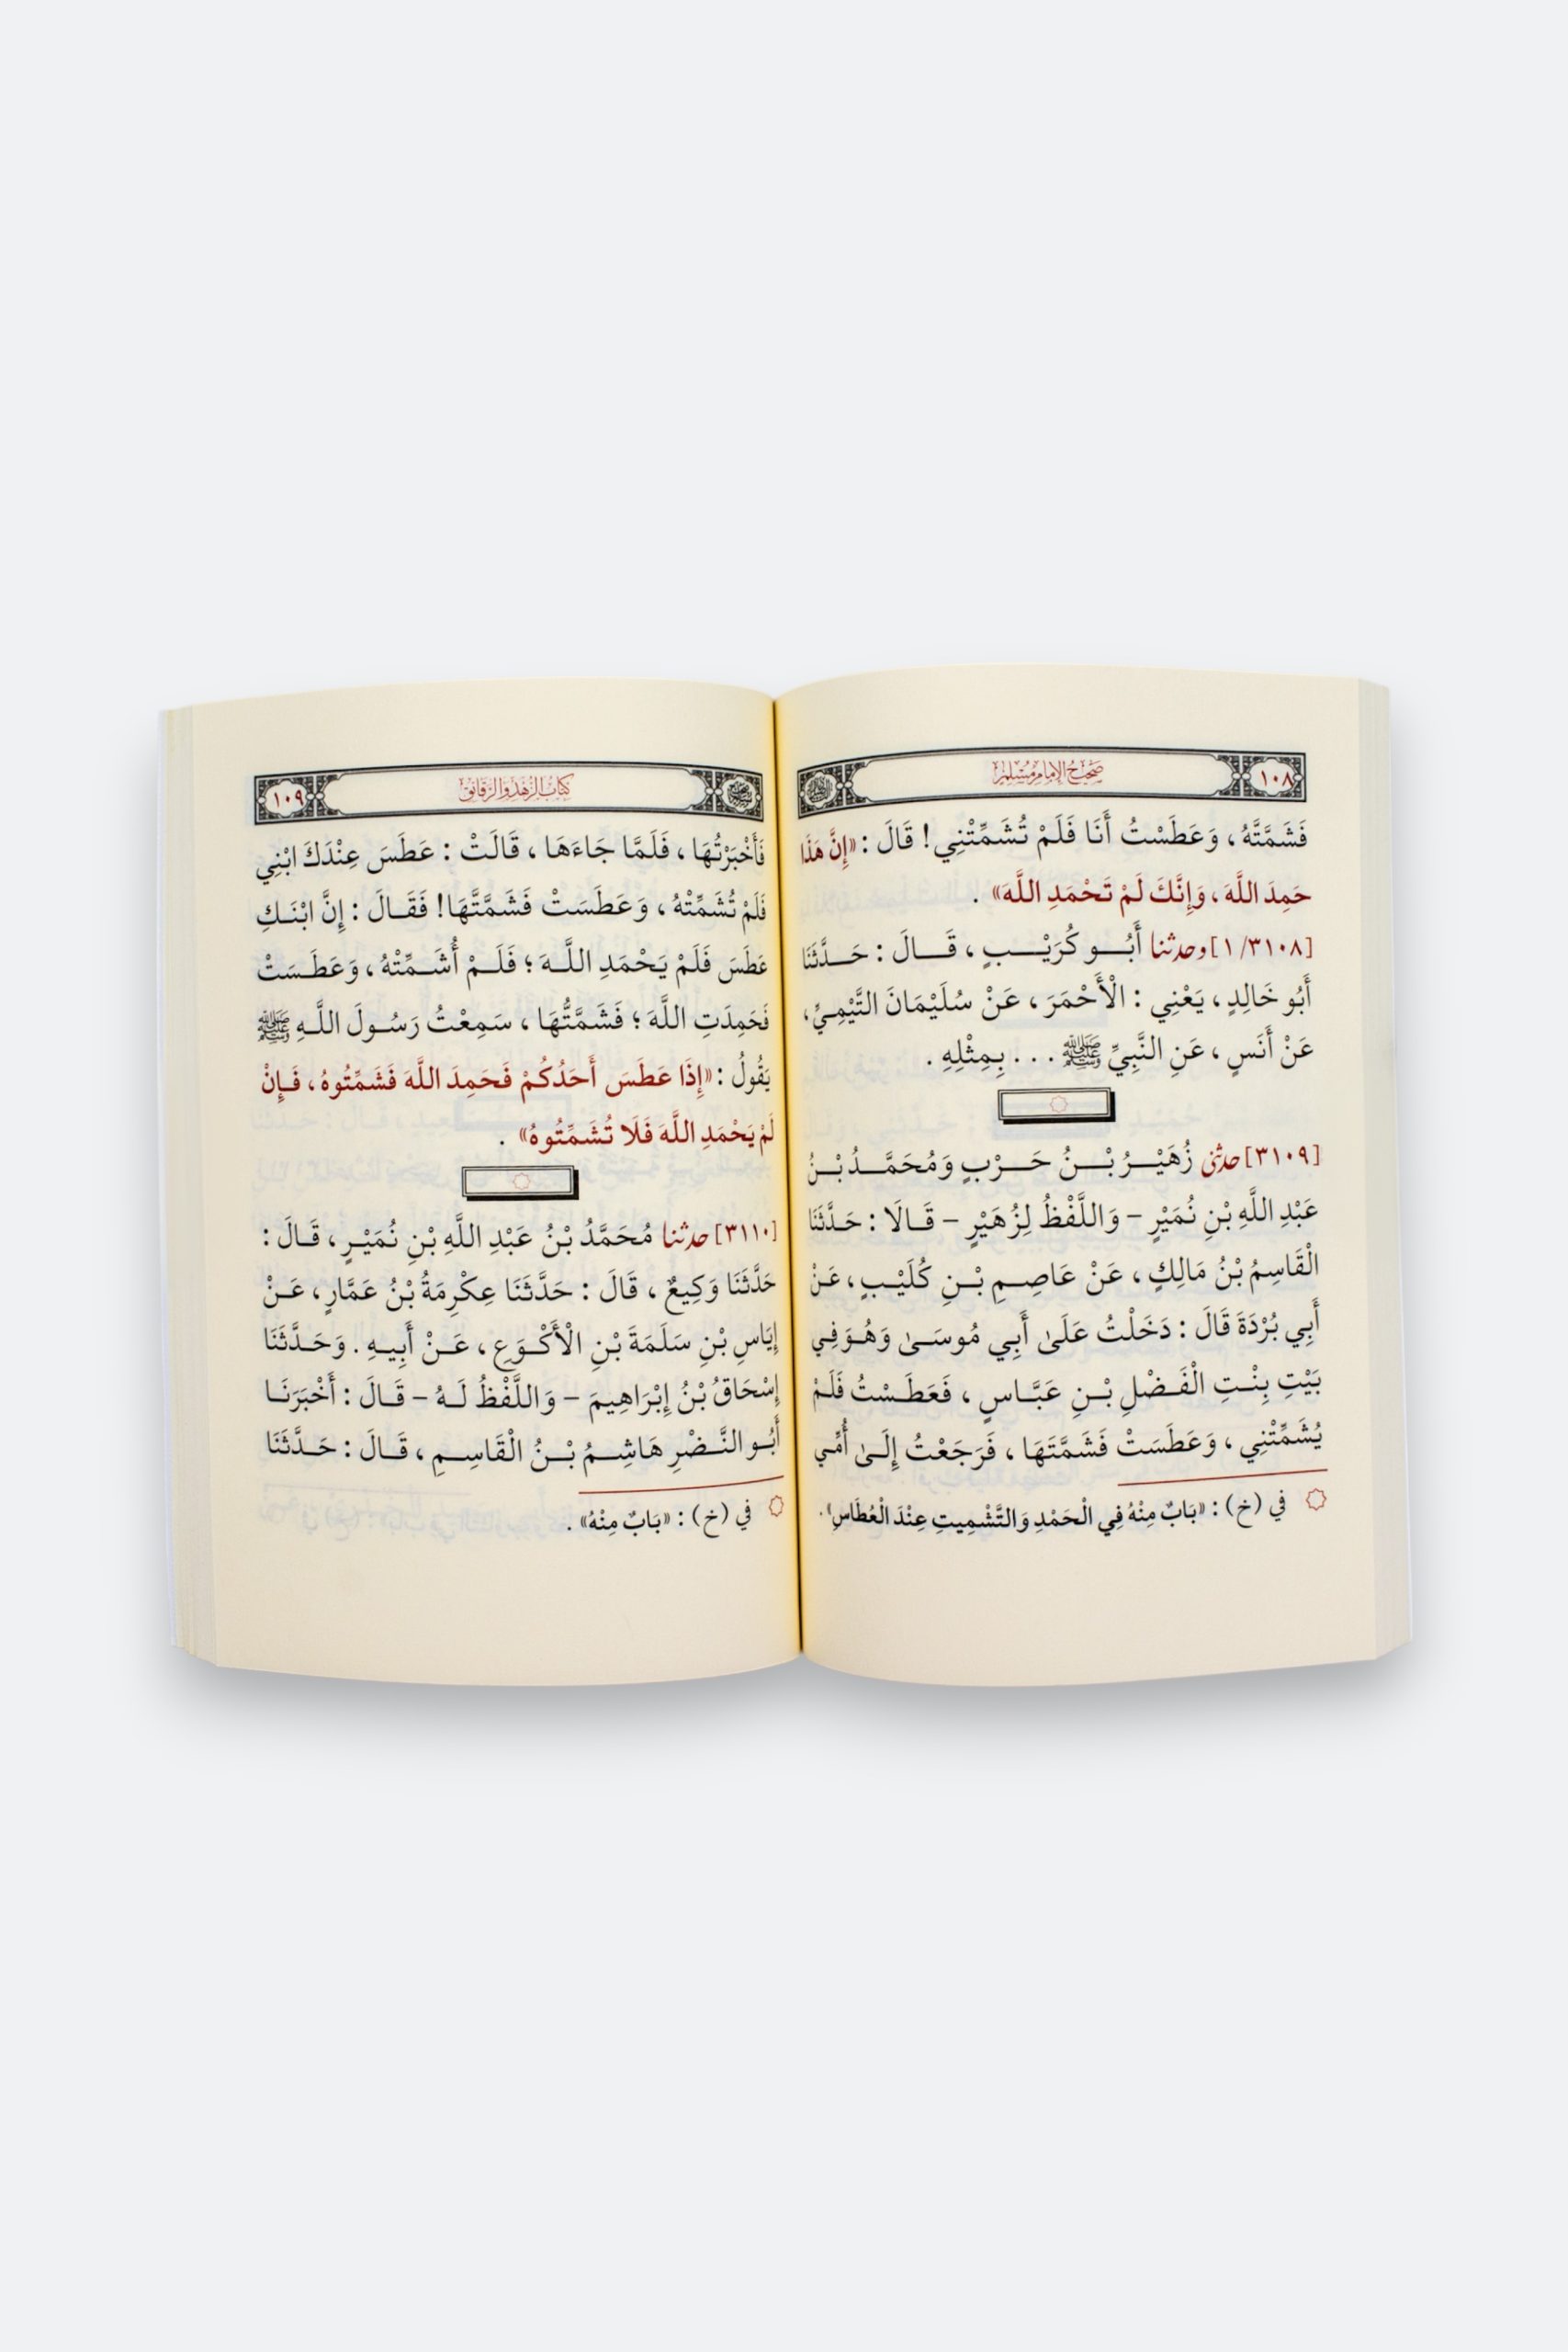 ١٠٨
صحيح الإمام مسلم
فَشَمَّتَّهُ ، وَعَطَسْتُ أَنَا فَلَمْ تُشَمِّتْنِي! قَالَ : «إِنَّ هَذَا
حَمِدَ اللَّهَ ، وَإِنَّكَ لَمْ تَحْمَدِ اللَّهَ» .
[٣١٠٨/ ١] وحدثنا أَبُو كُرَيْبٍ ، قَالَ : حَدَّثَنَا
أَبُو خَالِدٍ ، يَعْنِي : الْأَحْمَرَ ، عَنْ سُلَيْمَانَ التَّيْمِيِّ ،
عَنْ أَنَسٍ ، عَنِ النَّبِيِّ ﷺ . . . بِمِثْلِهِ .
[٣١٠٩] حدثني زُهَيْرُ بْنُ حَرْبٍ وَمُحَمَّدُ بْنُ
عَبْدِ اللَّهِ بْنِ نُمَيْرٍ – وَاللَّفْظُ لِزُهَيْرٍ – قَالَا : حَدَّثَنَا
الْقَاسِمُ بْنُ مَالِكٍ ، عَنْ عَاصِمِ بْنِ كُلَيْبٍ ، عَنْ
أَبِي بُرْدَةَ قَالَ : دَخَلْتُ عَلَىٰ أَبِي مُوسَىٰ وَهُوَ فِي
بَيْتِ بِنْتِ الْفَضْلِ بْنِ عَبَّاسٍ ، فَعَطَسْتُ فَلَمْ
يُشَمِّتْنِي ، وَعَطَسَتْ فَشَمَّتَهَا ، فَرَجَعْتُ إِلَىٰ أُمِّي
في (خ) : «بَابٌ مِنْهُ فِي الْحَمْدِ وَالتَّشْمِيتِ عِنْدَ الْعُطَاسِ» .
كتاب الزهد والرقائق
١٠٩
فَأَخْبَرْتُهَا ، فَلَمَّا جَاءَهَا ، قَالَتْ : عَطَسَ عِنْدَكَ ابْنِي
فَلَمْ تُشَمِّتْهُ ، وَعَطَسَتْ فَشَمَّتَّهَا! فَقَالَ : إِنَّ ابْنَكِ
عَطَسَ فَلَمْ يَحْمَدِ اللَّهَ ؛ فَلَمْ أُشَمِّتْهُ ، وَعَطَسَتْ
فَحَمِدَتِ اللَّهَ ؛ فَشَمَّتُّهَا ، سَمِعْتُ رَسُولَ اللَّهِ ﷺ
يَقُولُ : «إِذَا عَطَسَ أَحَدُكُمْ فَحَمِدَ اللَّهَ فَشَمِّتُوهُ ، فَإِنْ
لَمْ يَحْمَدِ اللَّهَ فَلَا تُشَمِّتُوهُ» .
[٣١١٠] حدثنا مُحَمَّدُ بْنُ عَبْدِ اللَّهِ بْنِ نُمَيْرٍ ، قَالَ :
حَدَّثَنَا وَكِيعٌ ، قَالَ : حَدَّثَنَا عِكْرِمَةُ بْنُ عَمَّارٍ ، عَنْ
إِيَاسِ بْنِ سَلَمَةَ بْنِ الْأَكْوَعِ ، عَنْ أَبِيهِ . وَحَدَّثَنَا
إِسْحَاقُ بْنُ إِبْرَاهِيمَ – وَاللَّفْظُ لَهُ – قَالَ : أَخْبَرَنَا
أَبُو النَّضْرِ هَاشِمُ بْنُ الْقَاسِمِ ، قَالَ : حَدَّثَنَا
في (خ) : «بَابٌ مِنْهُ» .